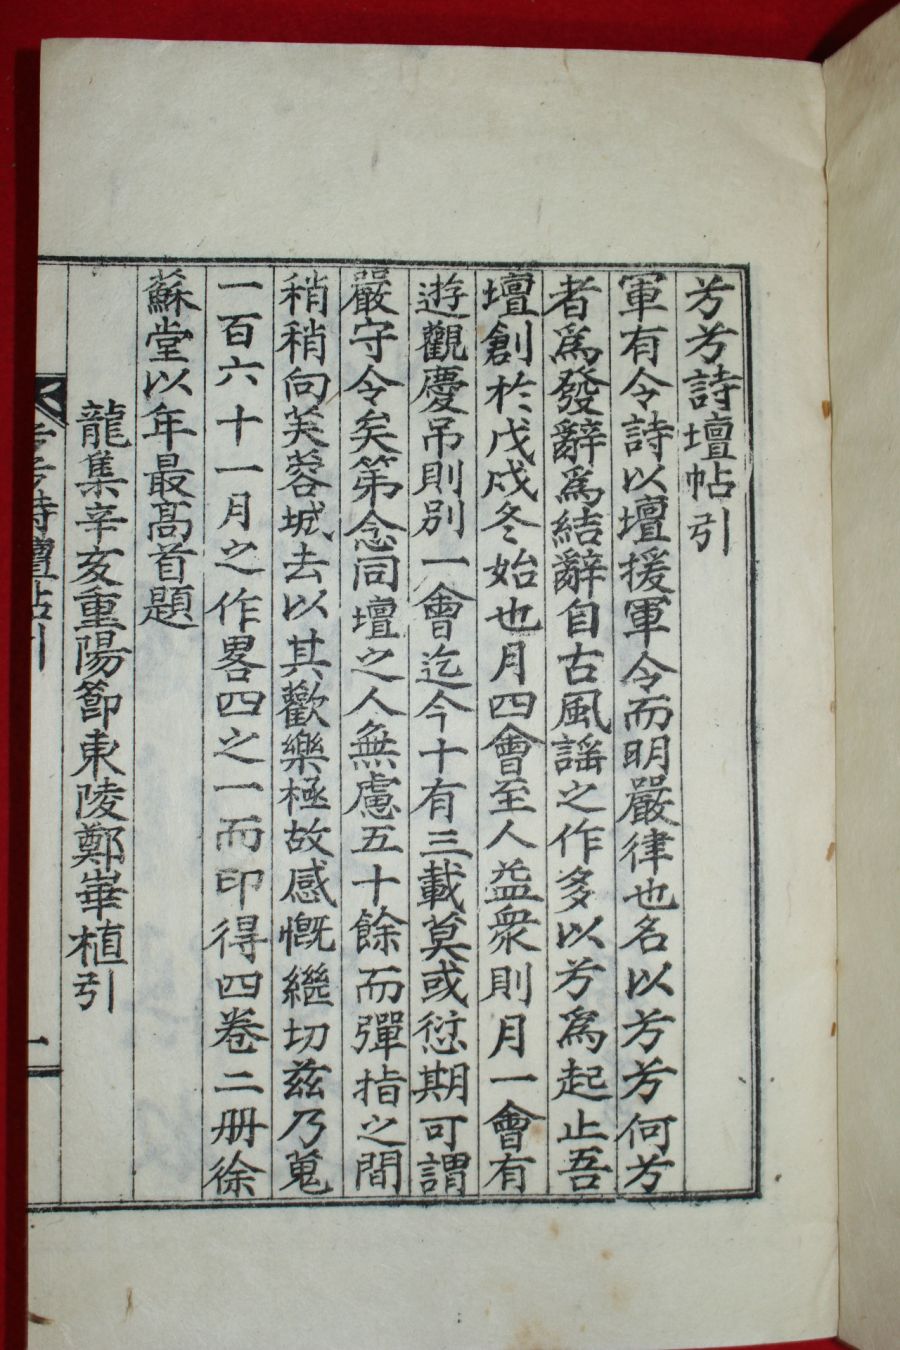 芳芳詩壇帖引
軍有令詩以壇援軍令而明嚴律也名以芳芳何芳
者爲發辭爲結辭自古風謡之作多以芳爲起止吾
壇創於戊戌冬始也月四會至人益衆則月一會有
遊觀慶吊則別一會迄今十有三載莫或愆期可謂
嚴守令矣第念同壇之人無慮五十餘而彈指之間
稍稍向芙蓉城去以其歡樂極故感慨繼切兹乃蒐
一百六十一月之作畧四之一而印得四卷二册徐
蘇堂以年最高首題
龍集辛亥重陽節東陵鄭崋植引
芳芳詩壇帖引
一